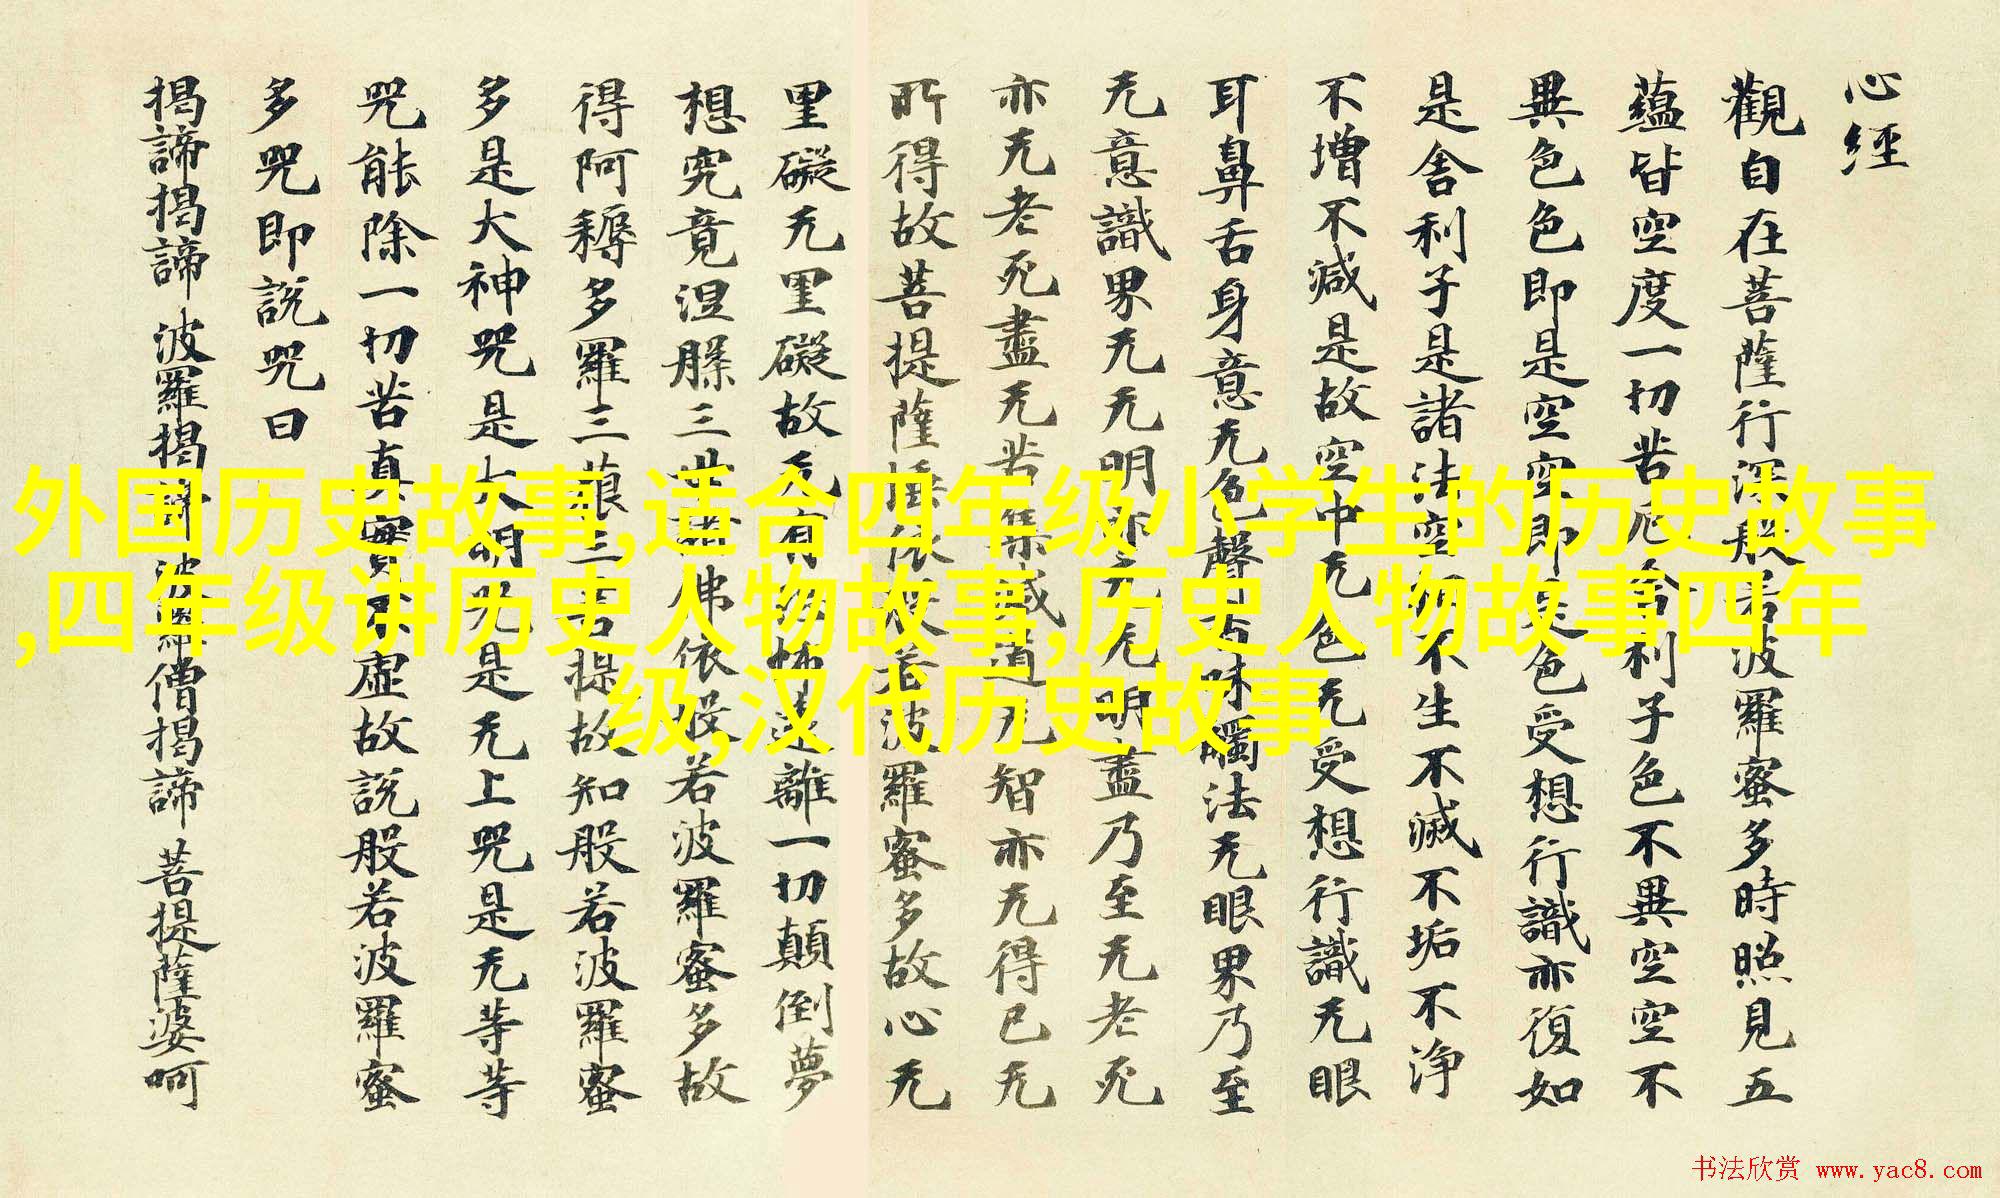 心經
觀自在菩薩行深般若波羅蜜多時照見五
蘊皆空度一切苦厄舍利子色不異空空不
異色色即是空空即是色受想行識亦復如
是舍利子是諸法空相不生不滅不垢不净
不增不減是故空中无色无受想行識无眼
耳鼻舌身意无色聲香味觸法无眼界乃至
无意識界无无明亦无无明盡乃至无老死
亦无老死盡无苦集滅道无智亦无得已无
所得故菩提薩埵依般若波羅蜜多故心无
罣礙无罣礙故无有恐怖遠離一切顛倒夢
想究竟涅槃三世諸佛依般若波羅蜜多故
得阿耨多羅三藐三菩提故知般若波羅蜜
多是大神咒是大明咒是无上咒是无等等
咒能除一切苦真實不虛故說般若波羅蜜
多咒即說咒曰
揭諦揭諦 波羅揭諦 波羅僧揭諦 菩提薩婆呵
外国历史故事,适合四年级小学生的历史故事
,四年级讲历史人物故事,历史人物故事四年
级,汉代历史故事
书法欣赏 www.yac8.com